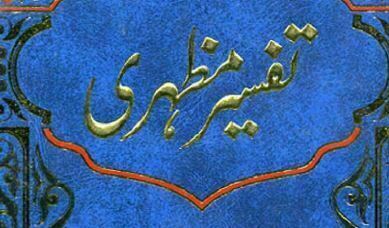 تفسیر مظہری